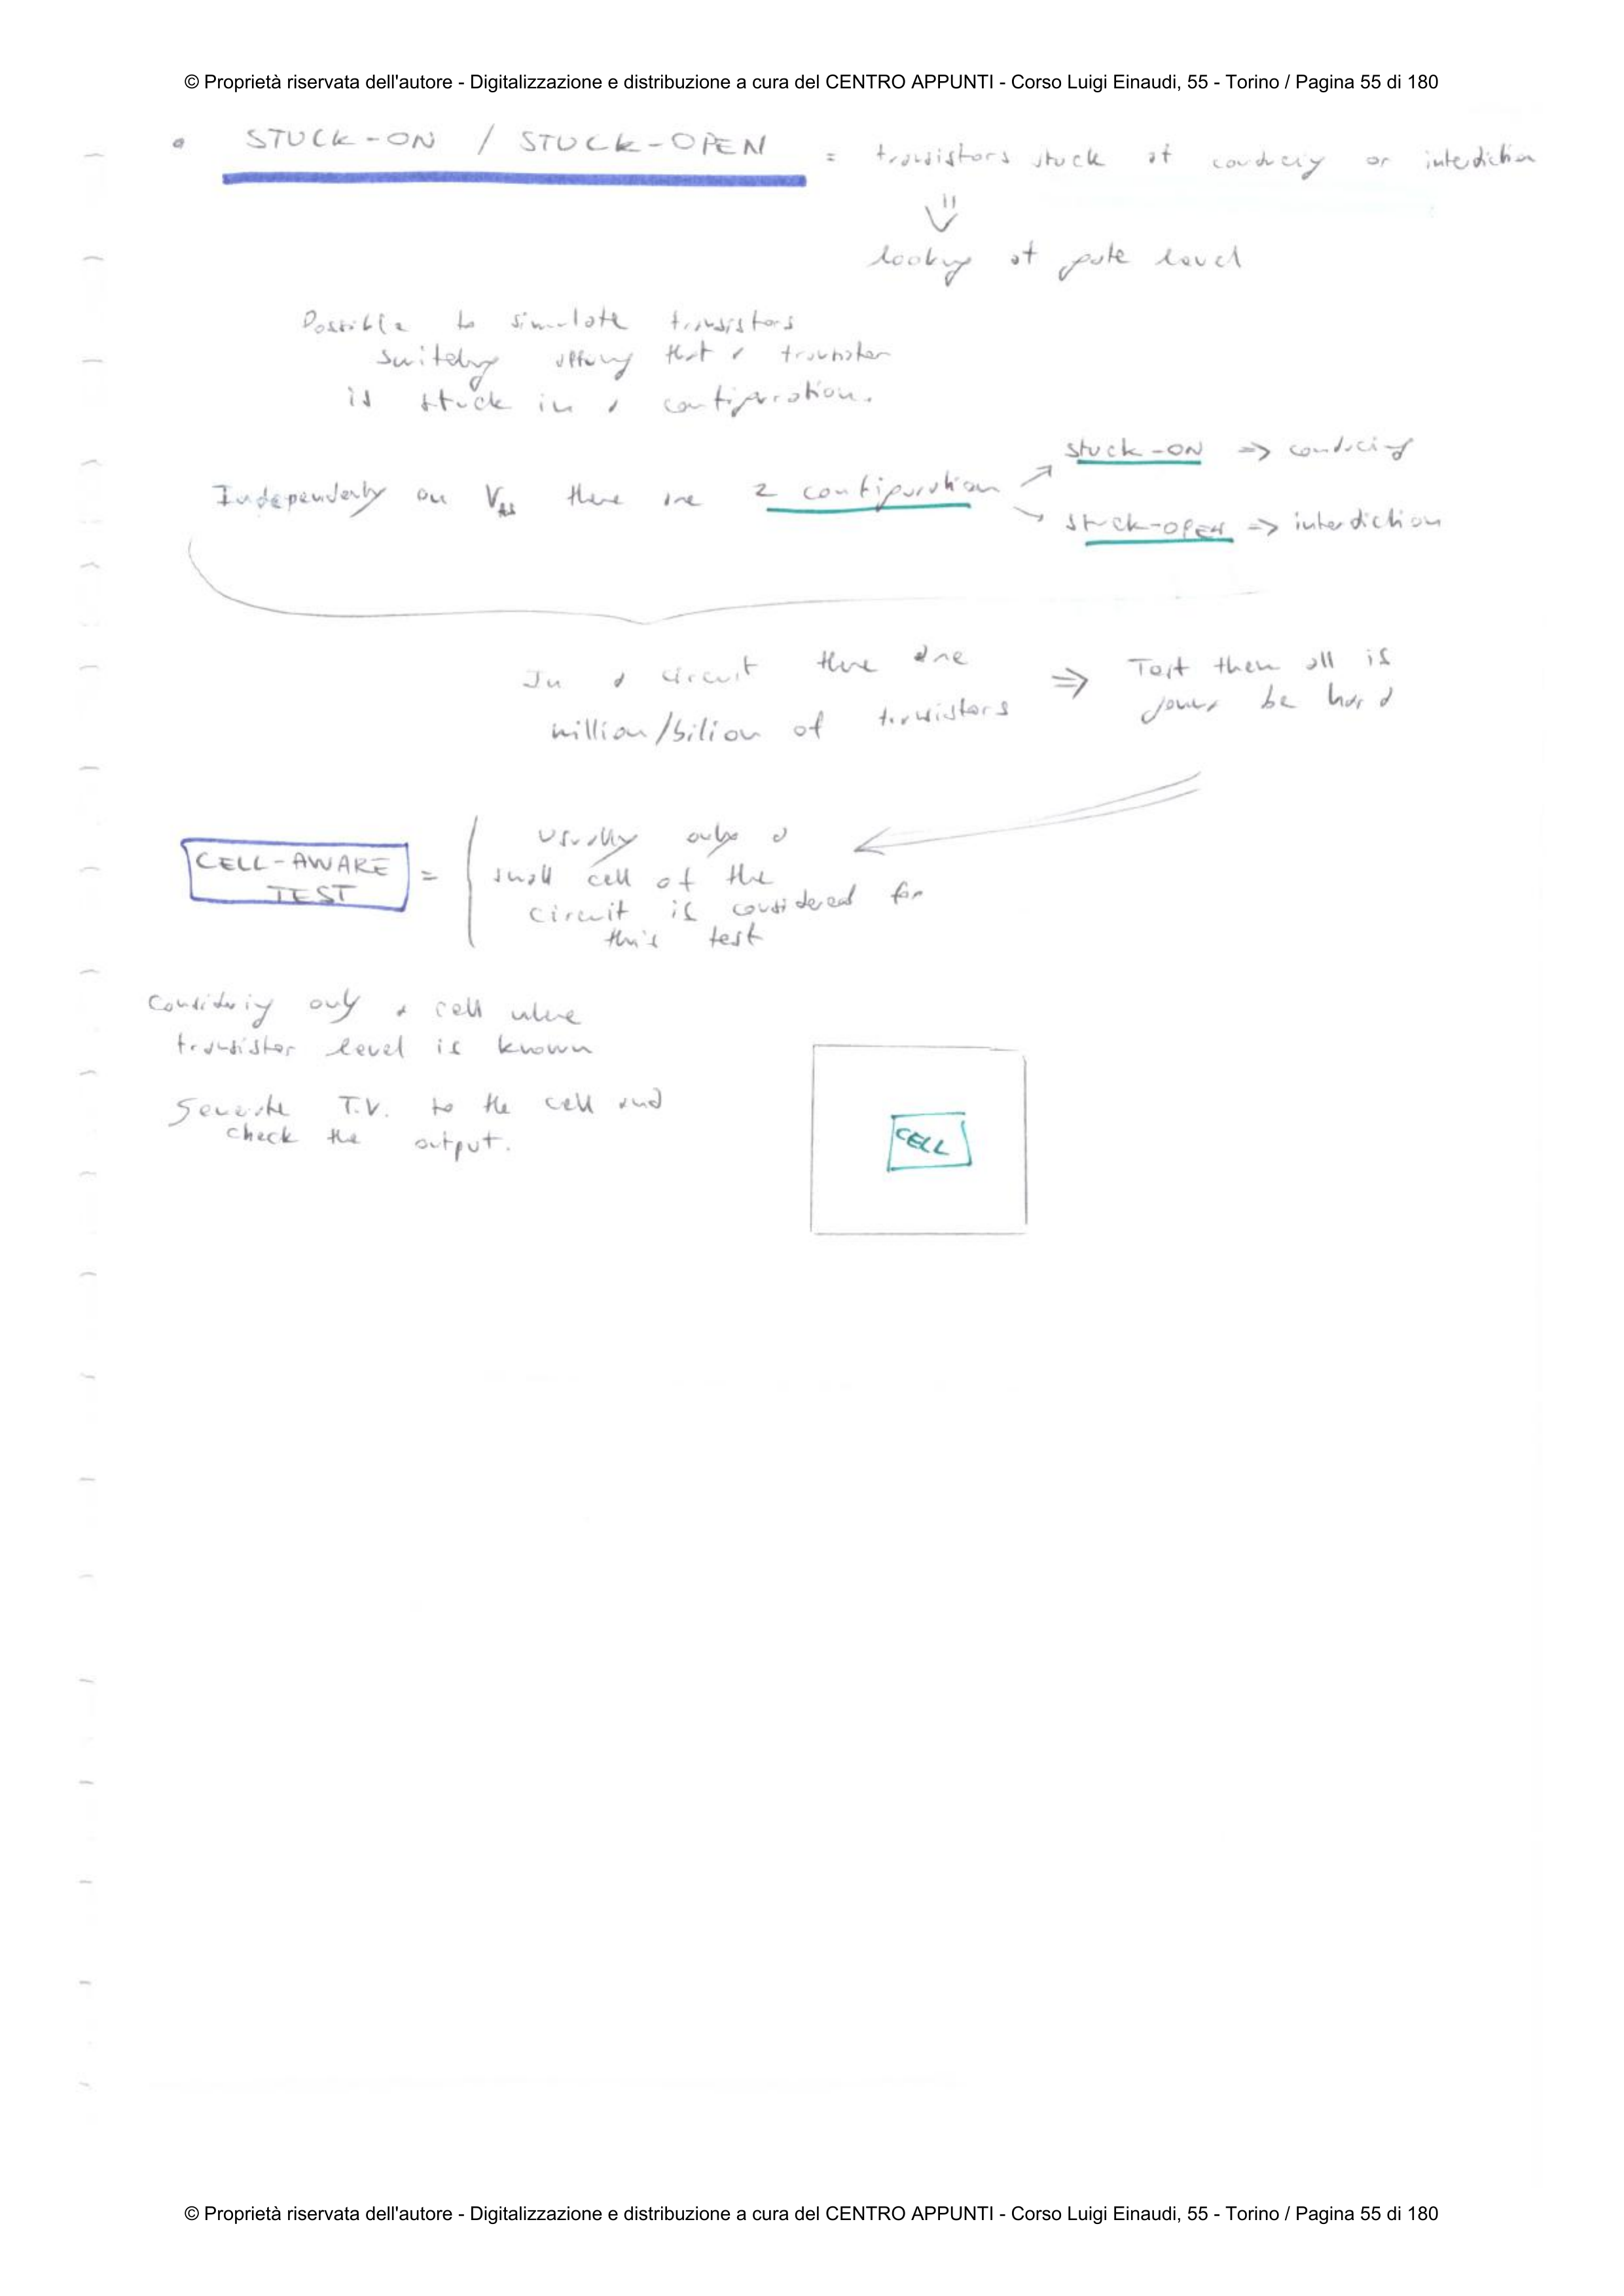 © Proprietà riservata dell'autore - Digitalizzazione e distribuzione a cura del CENTRO APPUNTI - Corso Luigi Einaudi, 55 - Torino / Pagina 55 di 180
• STUCK-ON / STUCK-OPEN = transistors stuck at conducing or interdiction
⇓
looking at gate level
Possible to simulate transistors
switching that a transistor
is stuck in a configuration.
Independently on V there are 2 configuration
stuck-ON => conducing
stuck-OPEN => interdiction
In a circuit there are
million/bilion of transistors
=> Test them all is
be hard
CELL-AWARE
TEST
=
Usually only a
small cell of the
circuit is considered for
this test
Considering only a cell where
transistor level is known
Generate T.V. to the cell and
check the output.
CELL
© Proprietà riservata dell'autore - Digitalizzazione e distribuzione a cura del CENTRO APPUNTI - Corso Luigi Einaudi, 55 - Torino / Pagina 55 di 180